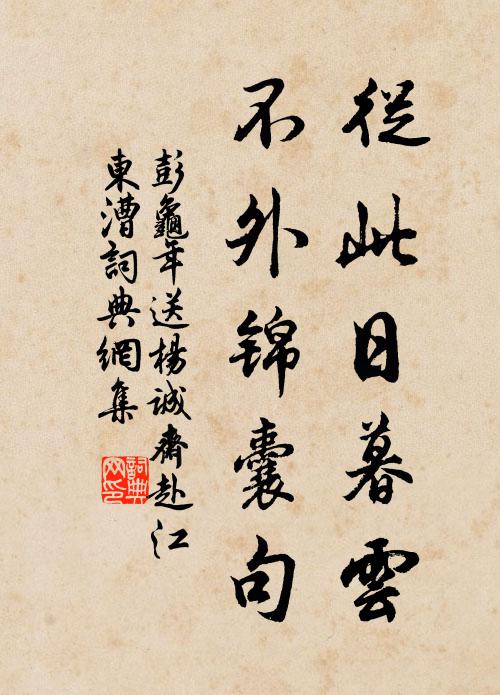 從此日暮雲
不外錦囊句
彭龜年送楊誠齋赴江
東漕詞典網集
詞典
网印